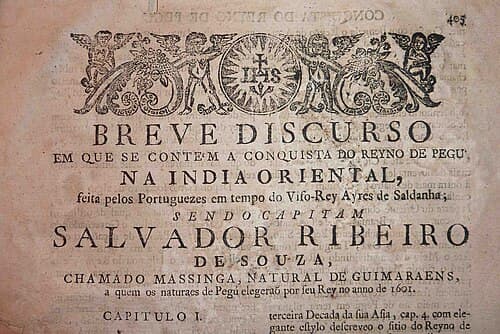 405
IHS
BREVE DISCURSO
EM QUE SE CONTE'M A CONQUISTA DO REYNO DE PEGU'
NA INDIA ORIENTAL,
feita pelos Portuguezes em tempo do Viso-Rey Ayres de Saldanha;
SENDO CAPITAM
SALVADOR RIBEIRO
DE SOUZA,
CHAMADO MASSINGA, NATURAL DE GUIMARAENS,
a quem os naturaes de Pegú elegeraõ por seu Rey no anno de 1601.
CAPITULO I.
terceira Decada da sua Asia, cap. 4. com ele-
gante estylo descreveo o sitio do Reyno de